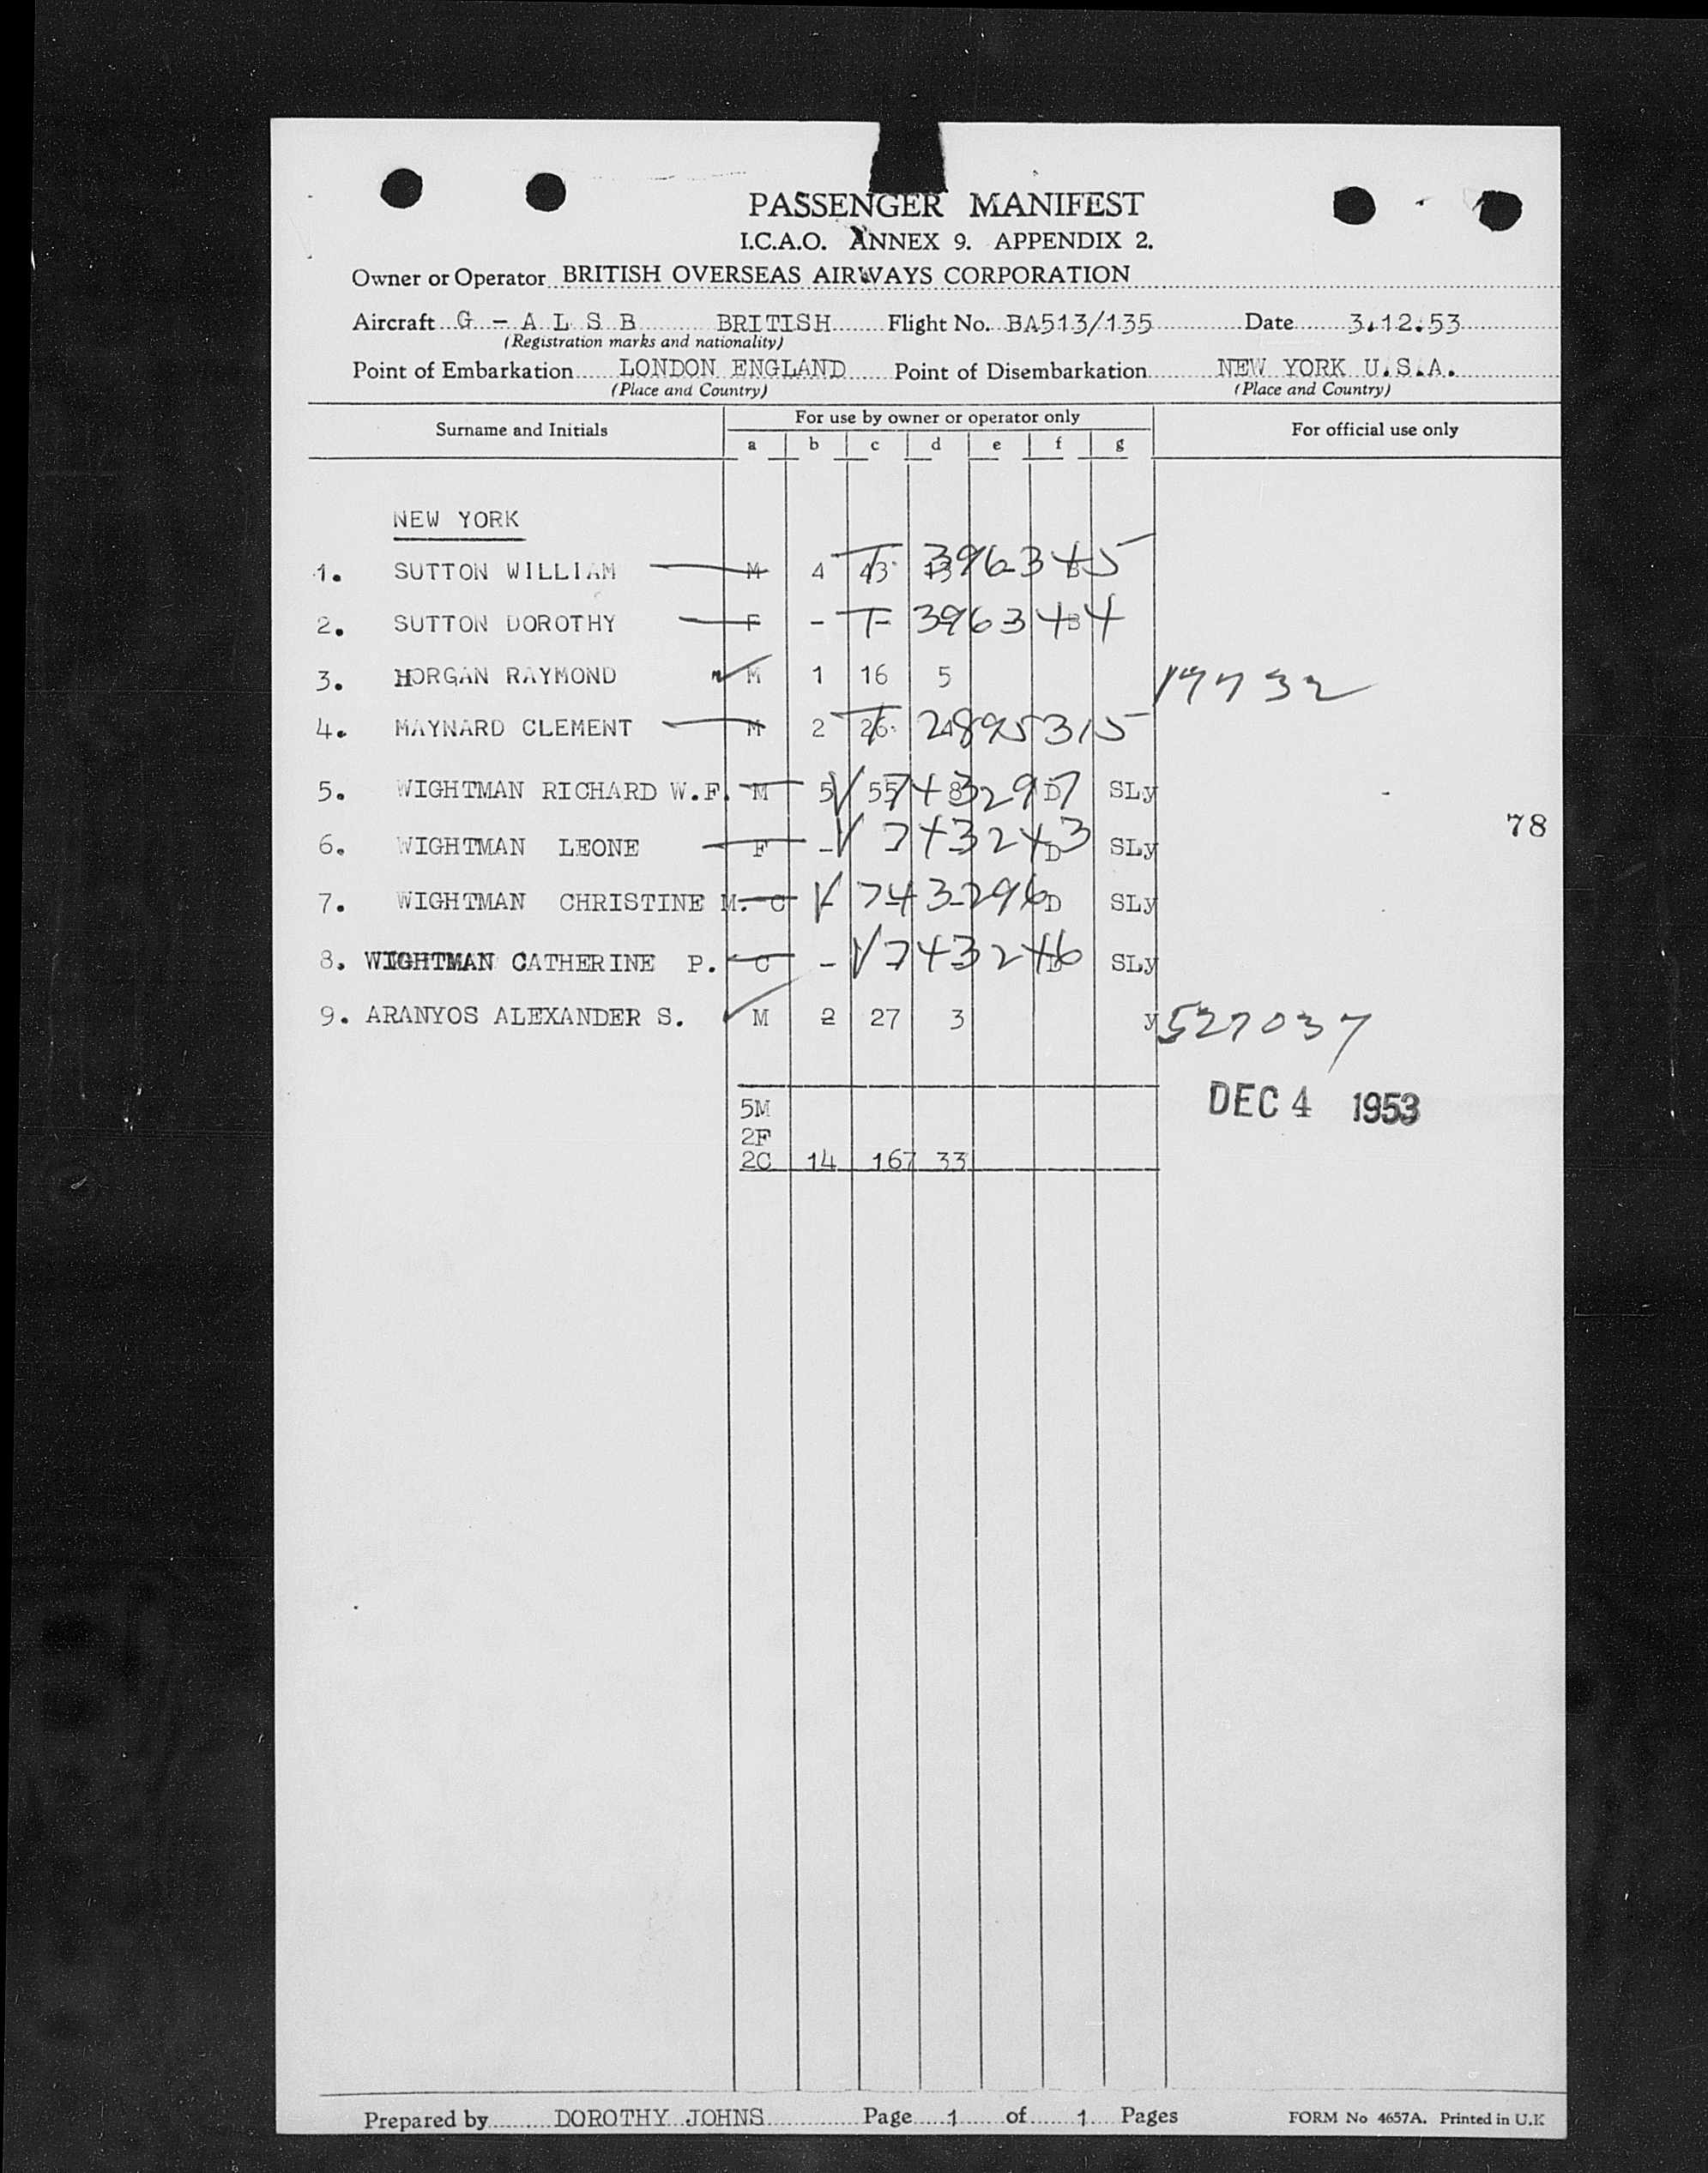 PASSENGER MANIFEST
I.C.A.O. ANNEX 9. APPENDIX 2.
Owner or Operator BRITISH OVERSEAS AIRWAYS CORPORATION
Aircraft G - A L S B BRITISH Flight No. BA513/135 Date 3.12.53
(Registration marks and nationality)
Point of Embarkation LONDON ENGLAND Point of Disembarkation NEW YORK U.S.A.
(Place and Country) (Place and Country)
Surname and Initials For use by owner or operator only For official use only
a b c d e f g
NEW YORK
1. SUTTON WILLIAM M 4 43 13 B T 396345
2. SUTTON DOROTHY F - - - B T 396344
3. HORGAN RAYMOND M 1 16 5 17732
4. MAYNARD CLEMENT M 2 26 T 2895315
5. WIGHTMAN RICHARD W.F. M 5 55 8 D SLy V 7483297
6. WIGHTMAN LEONE F - D SLy V 743243
7. WIGHTMAN CHRISTINE M. C - D SLy V 743296
78
8. WIGHTMAN CATHERINE P. C - D SLy V 743246
9. ARANYOS ALEXANDER S. M 2 27 3 y 527037
DEC 4 1953
5M
2F
2C 14 167 33
Prepared by DOROTHY JOHNS Page 1 of 1 Pages FORM No 4657A. Printed in U.K